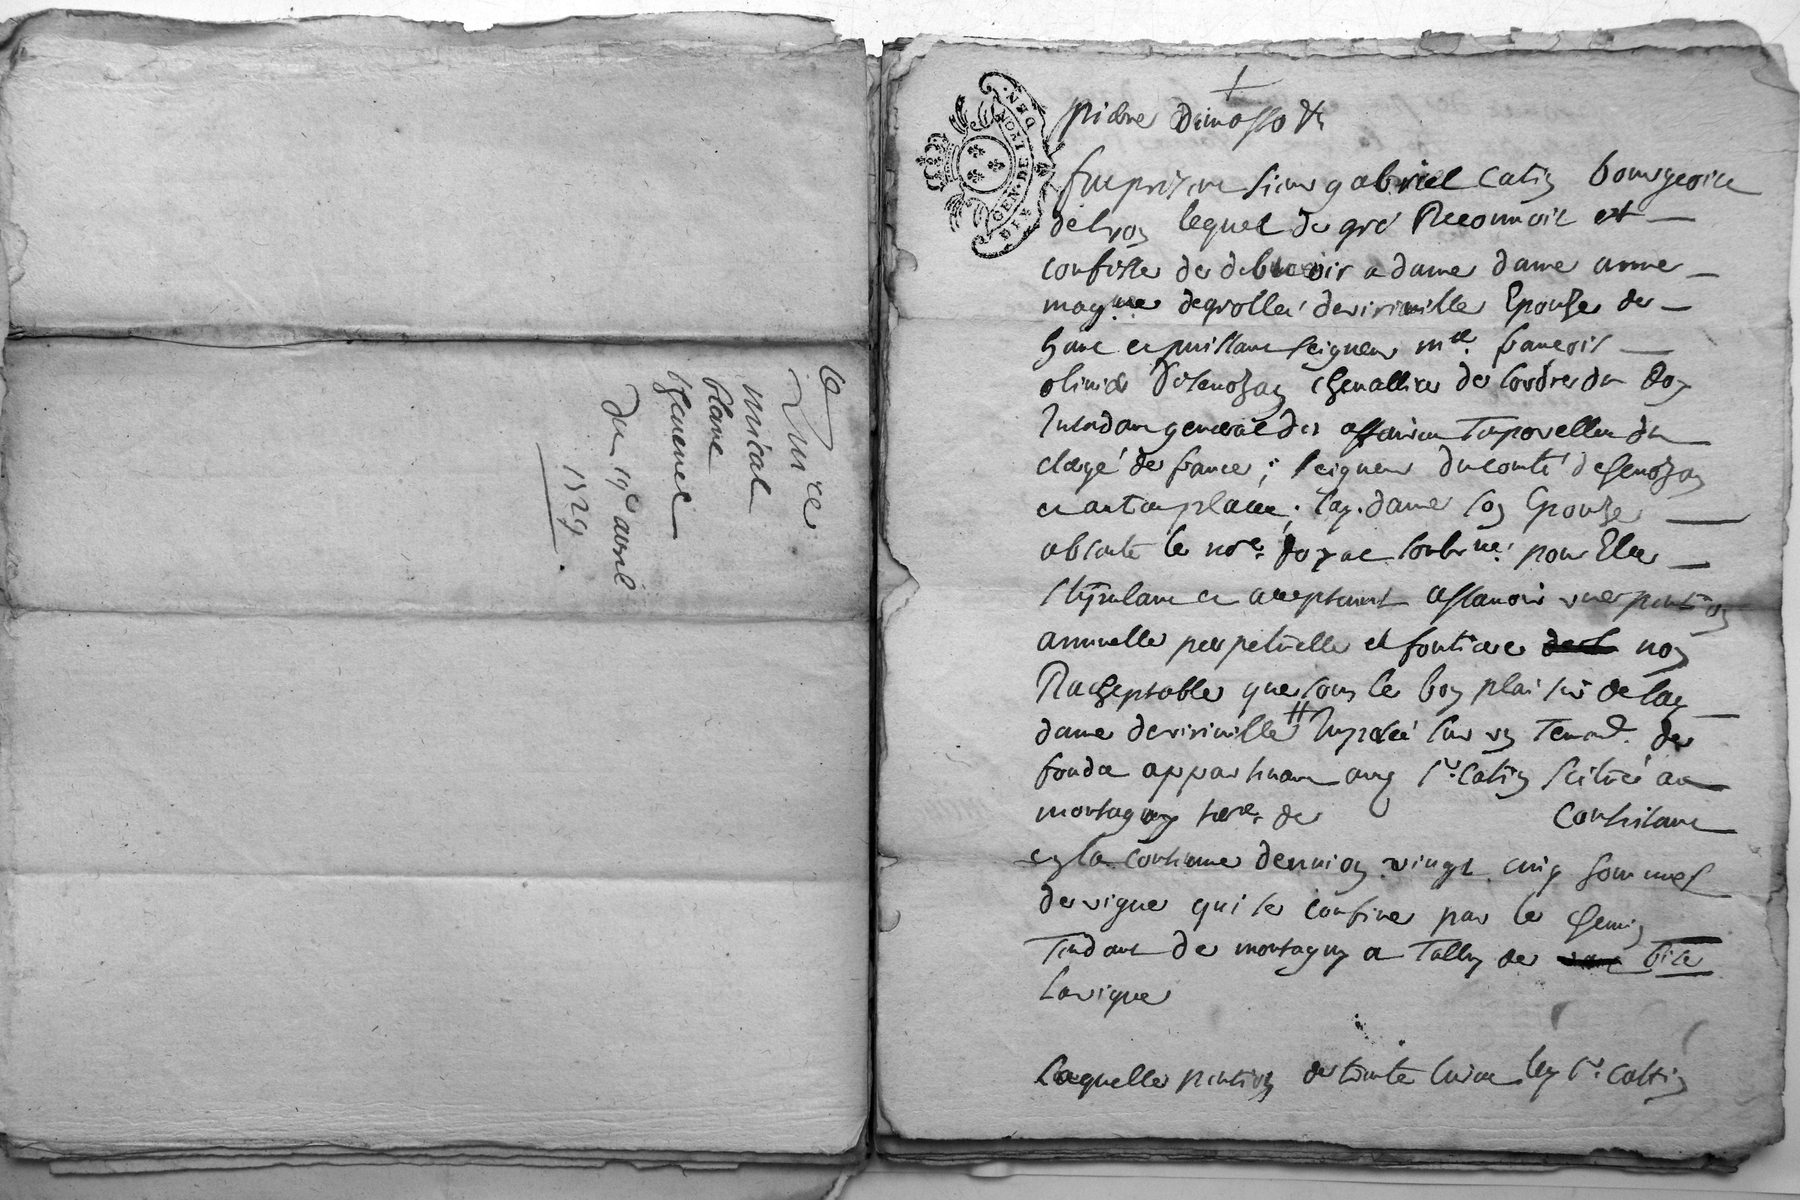 mical
blanc
du 19e avril
1729.
GEN. DE LYON
fut present sieur gabriel Catin bourgeois
de Lyon lequel de gré Reconnoit et
confesse de debvoir a dame dame anne
magne. de grollée de viriville Epouse de
haut et puissant seigneur mre. françois
olivier De senozan chevallier de lordre du Roy
Intendant general des affaires temporelles du
clergé de france ; seigneur du comté de senozan
et autres places ; lad. dame son Epouse
absente le nore. Royal soubsné pour Elle
stipulant et acceptant assavoir une pention
annuelle perpetuelle et fontiere non
Racheptable que sous le bon plaisir de lad
dame de viriville Imposée sur un tenemt. de
fonds appartenant aud sr. Catin scitué au
montagny terre. de consistant
en la contenue denviron vingt cinq hommes
de vigne qui se confine par le chemin
tendant de montagny a de bise
la vigne
Laquelle pention de led sr. Cattin